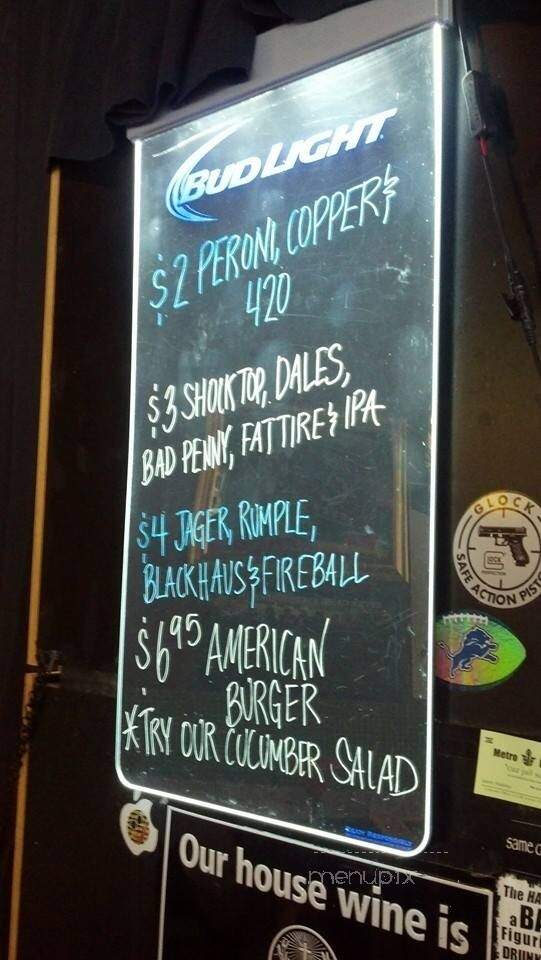 BUD LIGHT
$2 PERONI, COPPER &
420
$3 SHOCKTOP, DALES,
BAD PENNY, FAT TIRE & IPA
$4 JAGER, RUMPLE,
BLACKHAUS & FIREBALL
$6.95 AMERICAN
BURGER
*TRY OUR CUCUMBER SALAD
GLOCK
SAFE ACTION PIST
Metro
same
Our house wine is
menupix
The HA
a BA
Figuri
DRUN